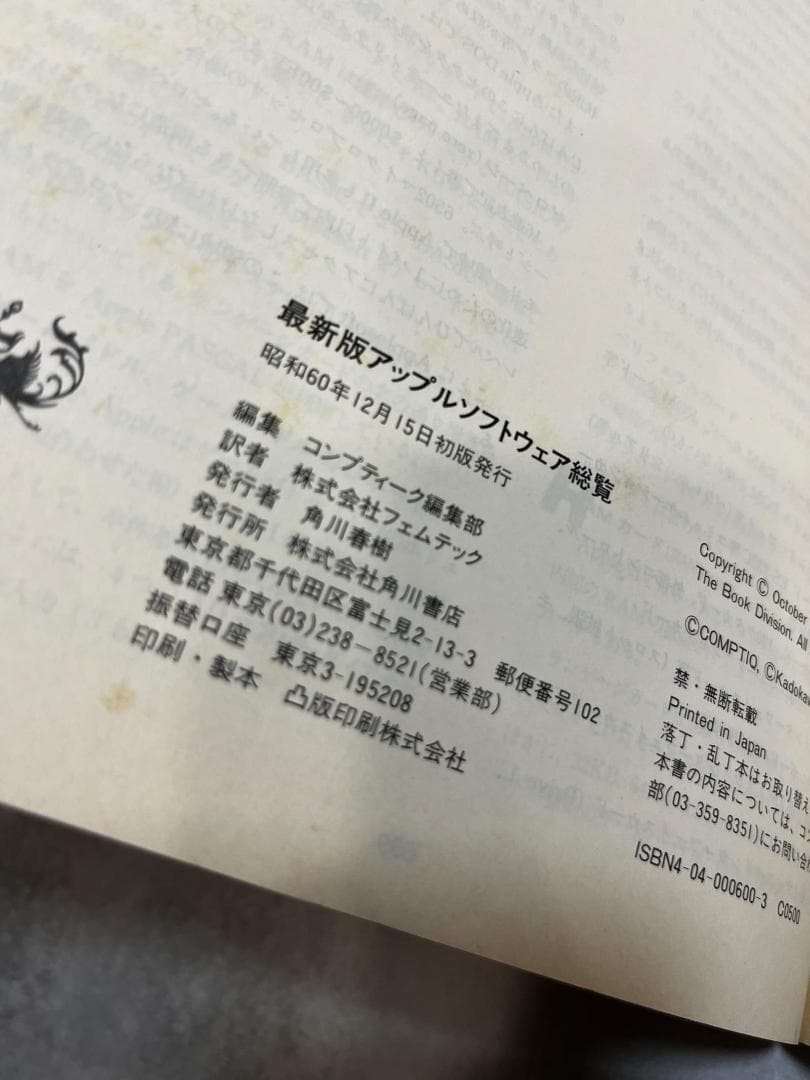 最新版アップルソフトウェア総覧
昭和60年12月15日初版発行
編集 コンプティーク編集部
訳者 株式会社フェムテック
発行者 角川春樹
発行所 株式会社角川書店
東京都千代田区富士見2-13-3 郵便番号102
電話 東京(03)238-8521(営業部)
振替口座 東京3-195208
印刷・製本 凸版印刷株式会社
Copyright © October
The Book Division. All
©COMPTIQ, ©Kadokaw
禁・無断転載
Printed in Japan
落丁・乱丁本はお取り替え
本書の内容については、コン
部(03-359-8351)にお問い合
ISBN4-04-000600-3 C0500